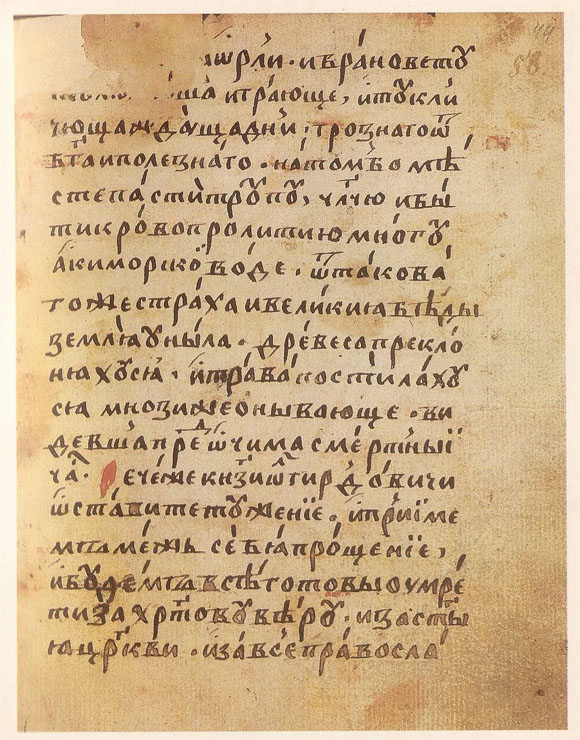 ꙍрли · и врановетꙋ
ша играюще, и тꙋ кли
чюща ждꙋща дн͠и, грознаго ѿ
бг͠а и полезнаго · на том бо мѣ
сте пасти трꙋпꙋ, чл͠чю и бы
ти кровопролитию многꙋ
аки морскои воде · ѿ такова
гоже страха и великиꙗ беды
землꙗ уныла · древеса прекло
нꙗхꙋсꙗ · и трава постилахꙋ
сꙗ мнози же онывающе · ви
девша пред ꙍчима смертныї
ча͠ · Рече же кн͠зи ꙍлгирдовичи
ꙍставите тꙋженїе · и приїме
мъ межь себꙗ прощенїе,
и бꙋдемъ всѣ готовы оумре
ти за хр͠товꙋ вѣрꙋ · и за ст͠ы
ꙗ цр͠кви · и за все правосла